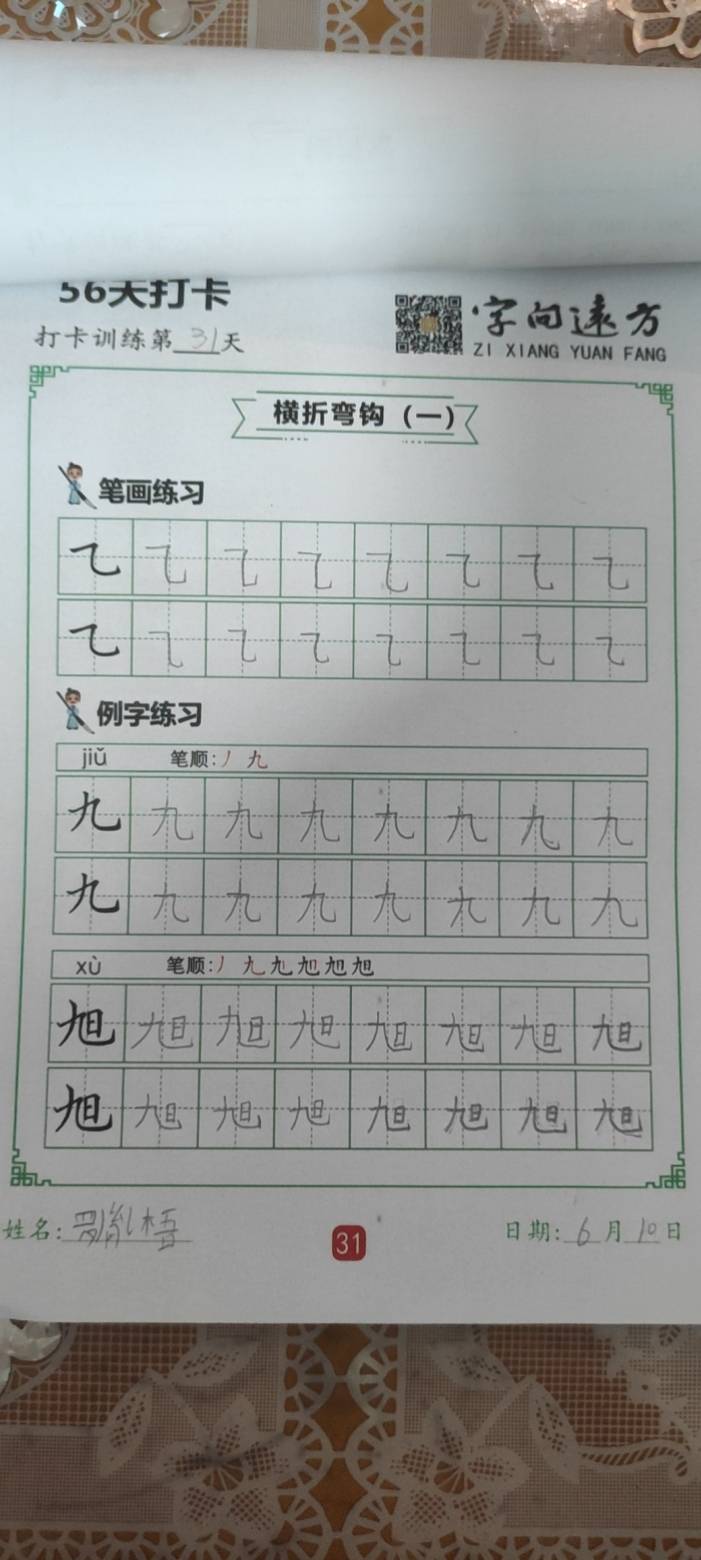 56天打卡
打卡训练第31天
字向远方
ZI XIANG YUAN FANG
横折弯钩（一）
笔画练习
乙 乙 乙 乙 乙 乙 乙 乙
乙 乙 乙 乙 乙 乙 乙 乙
例字练习
jiǔ 笔顺:丿 九
九 九 九 九 九 九 九 九
九 九 九 九 九 九 九 九
xù 笔顺:丿 九 九 旭 旭 旭
旭 旭 旭 旭 旭 旭 旭 旭
旭 旭 旭 旭 旭 旭 旭 旭
姓名:罗胤梧
31
日期:6月10日